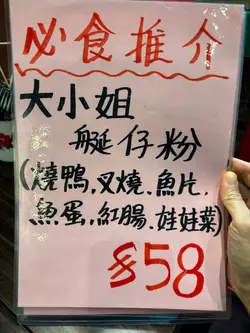 必食推介
大小姐
艇仔粉
(燒鴨,叉燒、魚片,
魚蛋,紅腸、娃娃菜)
$58